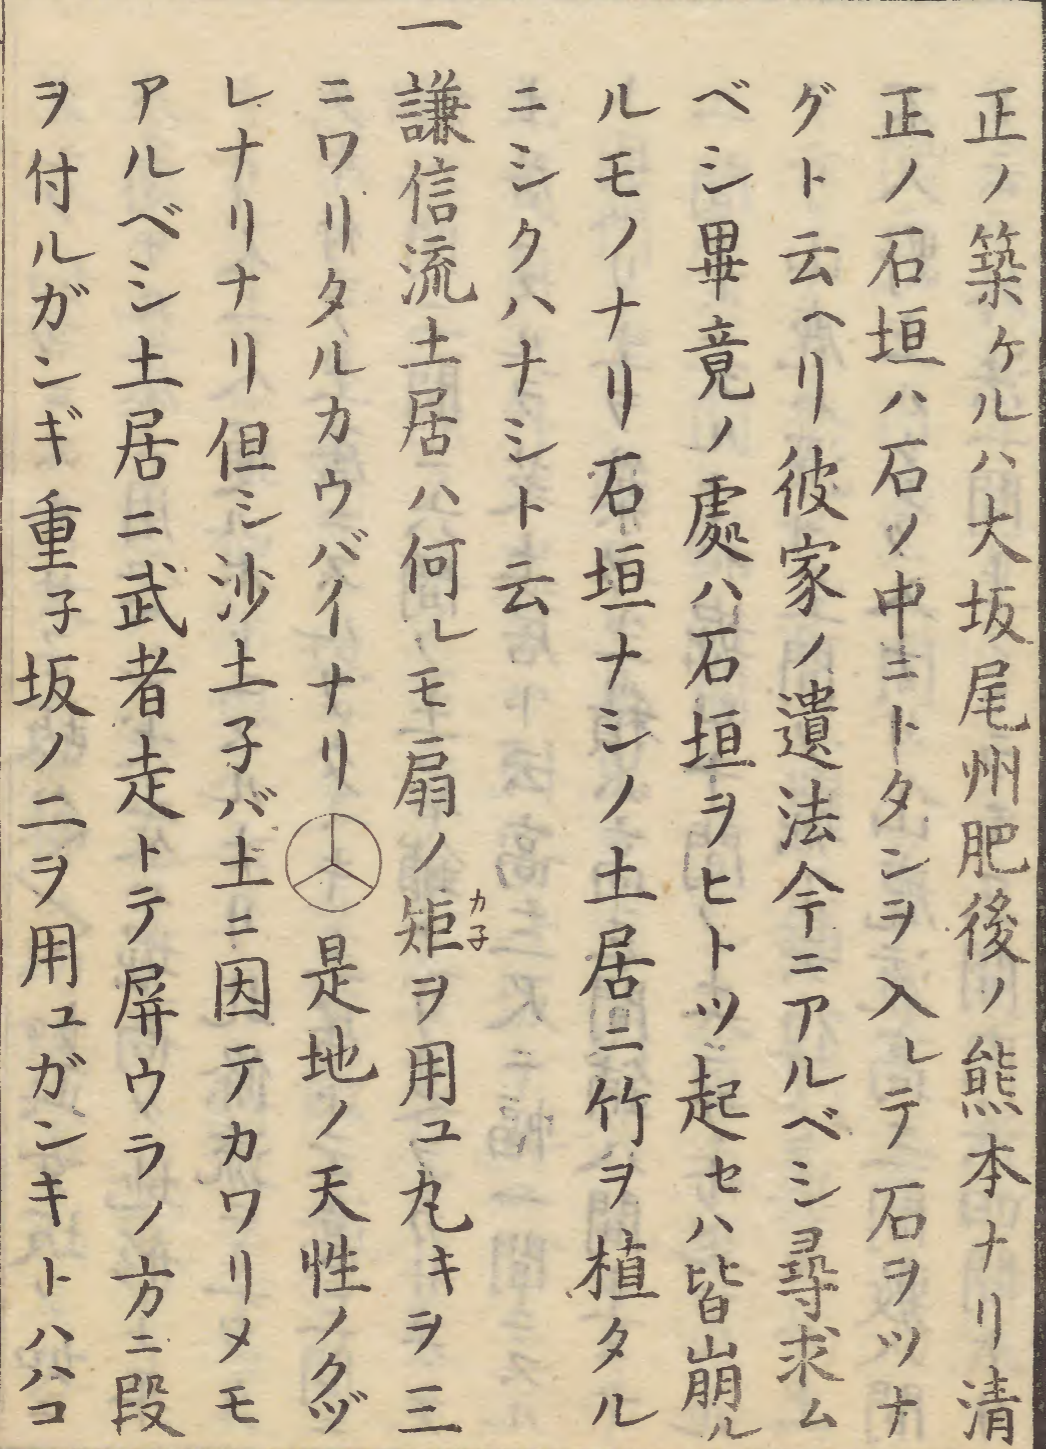 正ノ築ケルハ大坂尾州肥後ノ熊本ナリ清
正ノ石垣ハ石ノ中ニトタンヲ入レテ石ヲツナ
グト云ヘリ彼家ノ遺法今ニアルベシ尋求ム
ベシ畢竟ノ處ハ石垣ヲヒトツ起セハ皆崩ル
ルモノナリ石垣ナシノ土居ニ竹ヲ植タル
ニシクハナシト云
一謙信流土居ハ何レモ扇ノ矩カ子ヲ用ユ丸キヲ三
ニワリタルカウバイナリ是地ノ天性ノクヅ
レナリナリ但シ沙土子バ土ニ因テカワリメモ
アルベシ土居ニ武者走トテ屏ウラノ方ニ段
ヲ付ルガンギ重子坂ノ二ヲ用ユガンキトハハコ